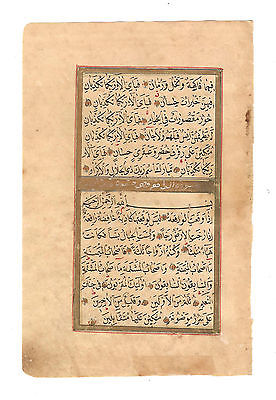 فِيهِمَا فَاكِهَةٌ وَنَخْلٌ وَرُمَّانٌ فَبِأَيِّ آلَاءِ رَبِّكُمَا تُكَذِّبَانِ
فِيهِنَّ خَيْرَاتٌ حِسَانٌ فَبِأَيِّ آلَاءِ رَبِّكُمَا تُكَذِّبَانِ
حُورٌ مَقْصُورَاتٌ فِي الْخِيَامِ فَبِأَيِّ آلَاءِ رَبِّكُمَا تُكَذِّبَانِ
لَمْ يَطْمِثْهُنَّ إِنْسٌ قَبْلَهُمْ وَلَا جَانٌّ فَبِأَيِّ آلَاءِ رَبِّكُمَا
تُكَذِّبَانِ مُتَّكِئِينَ عَلَى رَفْرَفٍ خُضْرٍ وَعَبْقَرِيٍّ حِسَانٍ فَبِأَيِّ آلَاءِ
رَبِّكُمَا تُكَذِّبَانِ تَبَارَكَ اسْمُ رَبِّكَ ذِي الْجَلَالِ وَالْإِكْرَامِ
سورة الواقعة
بِسْمِ اللَّهِ الرَّحْمَنِ الرَّحِيمِ
إِذَا وَقَعَتِ الْوَاقِعَةُ لَيْسَ لِوَقْعَتِهَا كَاذِبَةٌ خَافِضَةٌ رَافِعَةٌ
إِذَا رُجَّتِ الْأَرْضُ رَجًّا وَبُسَّتِ الْجِبَالُ بَسًّا فَكَانَتْ
هَبَاءً مُنْبَثًّا وَكُنْتُمْ أَزْوَاجًا ثَلَاثَةً فَأَصْحَابُ الْمَيْمَنَةِ
مَا أَصْحَابُ الْمَيْمَنَةِ وَأَصْحَابُ الْمَشْئَمَةِ مَا أَصْحَابُ الْمَشْئَمَةِ
وَالسَّابِقُونَ السَّابِقُونَ أُولَئِكَ الْمُقَرَّبُونَ فِي جَنَّاتِ
النَّعِيمِ ثُلَّةٌ مِنَ الْأَوَّلِينَ وَقَلِيلٌ مِنَ الْآخِرِينَ
عَلَى سُرُرٍ مَوْضُونَةٍ مُتَّكِئِينَ عَلَيْهَا مُتَقَابِلِينَ